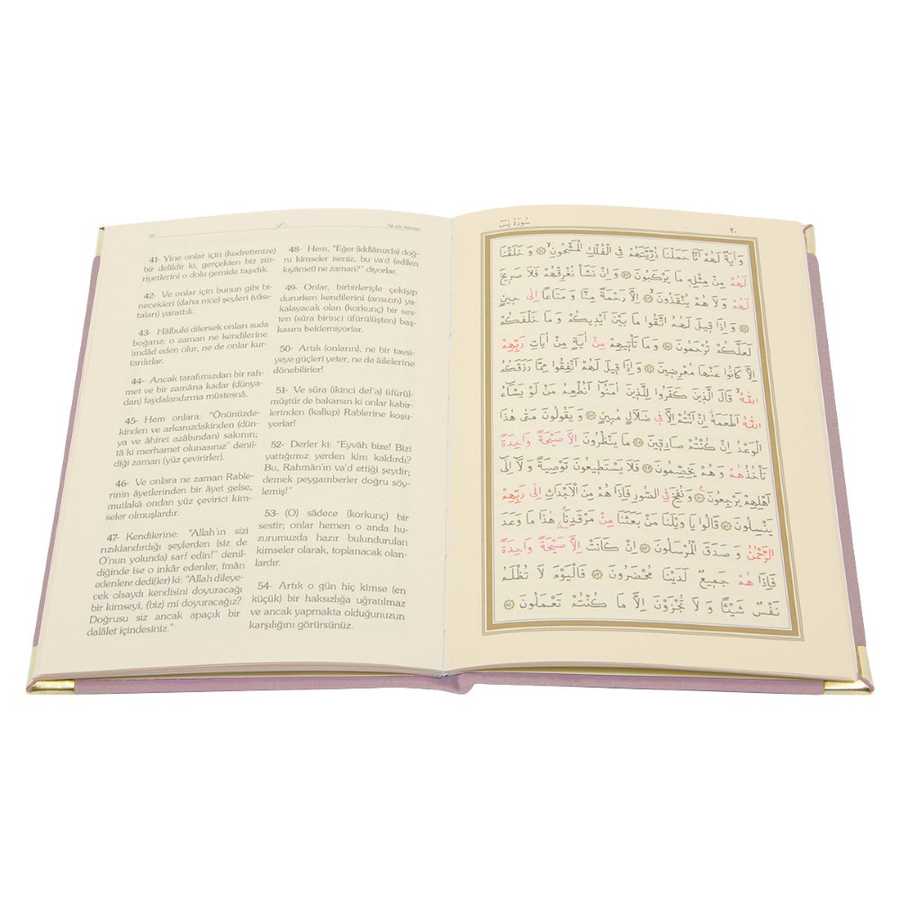 41- Yine onlar için (kudretimize)
bir delildir ki, gerçekten biz zür-
riyetlerini o dolu gemide taşıdık.
42- Ve onlar için bunun gibi bi-
necekleri (daha nice) şeyleri (vâsı-
taları) yarattık.
43- Hâlbuki dilersek onları suda
boğarız; o zaman ne kendilerine
imdâd eden olur, ne de onlar kur-
tarılırlar.
44- Ancak tarafımızdan bir rah-
met ve bir zamâna kadar (dünya-
dan) faydalandırma müstesnâ.
45- Hem onlara: "Önünüzde-
kinden ve arkanızdakinden (dün-
ya ve âhiret azâbından) sakının;
tâ ki merhamet olunasınız" denil-
diği zaman (yüz çevirirler).
46- Ve onlara ne zaman Rable-
rinin âyetlerinden bir âyet gelse,
mutlaka ondan yüz çevirici kim-
seler olmuşlardır.
47- Kendilerine: "Allah'ın sizi
rızıklandırdığı şeylerden (siz de
O'nun yolunda) sarf edin!" denil-
diğinde ise o inkâr edenler, îmân
edenlere dedi(ler) ki: "Allah dileye-
cek olsaydı kendisini doyuracağı
bir kimseyi, (biz) mi doyuracağız?
Doğrusu siz ancak apaçık bir
dalâlet içindesiniz."
48- Hem, "Eğer (iddiânızda) doğ-
ru kimseler iseniz, bu va'd (edilen
kıyâmet) ne zaman?" diyorlar.
49- Onlar, birbirleriyle çekişip
dururken kendilerini (ansızın) ya-
kalayacak olan (korkunç) bir ses-
ten (sûra birinci üfürülüşten) baş-
kasını beklemiyorlar.
50- Artık (onların), ne bir tavsi-
yeye güçleri yeter, ne de âilelerine
dönebilirler!
51- Ve sûra (ikinci def'a) üfürül-
müştür de bakarsın ki onlar kabir-
lerinden (kalkıp) Rablerine koşu-
yorlar!
52- Derler ki: "Eyvâh bize! Bizi
yattığımız yerden kim kaldırdı?
Bu, Rahmân'ın va'd ettiği şeydir;
demek peygamberler doğru söy-
lemiş!"
53- (O) sâdece (korkunç) bir
sestir; onlar hemen o anda hu-
zurumuzda hazır bulundurulan
kimseler olarak, toplanacak olan-
lardır.
54- Artık o gün hiç kimse (en
küçük) bir haksızlığa uğratılmaz
ve ancak yapmakta olduğunuzun
karşılığını görürsünüz.
٢٠ سُورَةُ يٰسٓ
وَاٰيَةٌ لَهُمْ اَنَّا حَمَلْنَا ذُرِّيَّتَهُمْ فِي الْفُلْكِ الْمَشْحُونِ ﴿٤١﴾ وَخَلَقْنَا
لَهُمْ مِنْ مِثْلِهِ مَا يَرْكَبُونَ ﴿٤٢﴾ وَاِنْ نَشَأْ نُغْرِقْهُمْ فَلَا صَرِيخَ
لَهُمْ وَلَا هُمْ يُنْقَذُونَ ﴿٤٣﴾ اِلَّا رَحْمَةً مِنَّا وَمَتَاعًا اِلٰى حِينٍ
﴿٤٤﴾ وَاِذَا قِيلَ لَهُمُ اتَّقُوا مَا بَيْنَ اَيْدِيكُمْ وَمَا خَلْفَكُمْ
لَعَلَّكُمْ تُرْحَمُونَ ﴿٤٥﴾ وَمَا تَأْتِيهِمْ مِنْ اٰيَةٍ مِنْ اٰيَاتِ رَبِّهِمْ
اِلَّا كَانُوا عَنْهَا مُعْرِضِينَ ﴿٤٦﴾ وَاِذَا قِيلَ لَهُمْ اَنْفِقُوا مِمَّا رَزَقَكُمُ
اللّٰهُ قَالَ الَّذِينَ كَفَرُوا لِلَّذِينَ اٰمَنُوا اَنُطْعِمُ مَنْ لَوْ يَشَاءُ
اللّٰهُ اَطْعَمَهُ اِنْ اَنْتُمْ اِلَّا فِي ضَلَالٍ مُبِينٍ ﴿٤٧﴾ وَيَقُولُونَ مَتٰى هٰذَا
الْوَعْدُ اِنْ كُنْتُمْ صَادِقِينَ ﴿٤٨﴾ مَا يَنْظُرُونَ اِلَّا صَيْحَةً وَاحِدَةً
تَأْخُذُهُمْ وَهُمْ يَخِصِّمُونَ ﴿٤٩﴾ فَلَا يَسْتَطِيعُونَ تَوْصِيَةً وَلَا اِلٰى
اَهْلِهِمْ يَرْجِعُونَ ﴿٥٠﴾ وَنُفِخَ فِي الصُّورِ فَاِذَا هُمْ مِنَ الْاَجْدَاثِ اِلٰى رَبِّهِمْ
يَنْسِلُونَ ﴿٥١﴾ قَالُوا يَا وَيْلَنَا مَنْ بَعَثَنَا مِنْ مَرْقَدِنَا هٰذَا مَا وَعَدَ
الرَّحْمٰنُ وَصَدَقَ الْمُرْسَلُونَ ﴿٥٢﴾ اِنْ كَانَتْ اِلَّا صَيْحَةً وَاحِدَةً
فَاِذَا هُمْ جَمِيعٌ لَدَيْنَا مُحْضَرُونَ ﴿٥٣﴾ فَالْيَوْمَ لَا تُظْلَمُ
نَفْسٌ شَيْئًا وَلَا تُجْزَوْنَ اِلَّا مَا كُنْتُمْ تَعْمَلُونَ ﴿٥٤﴾